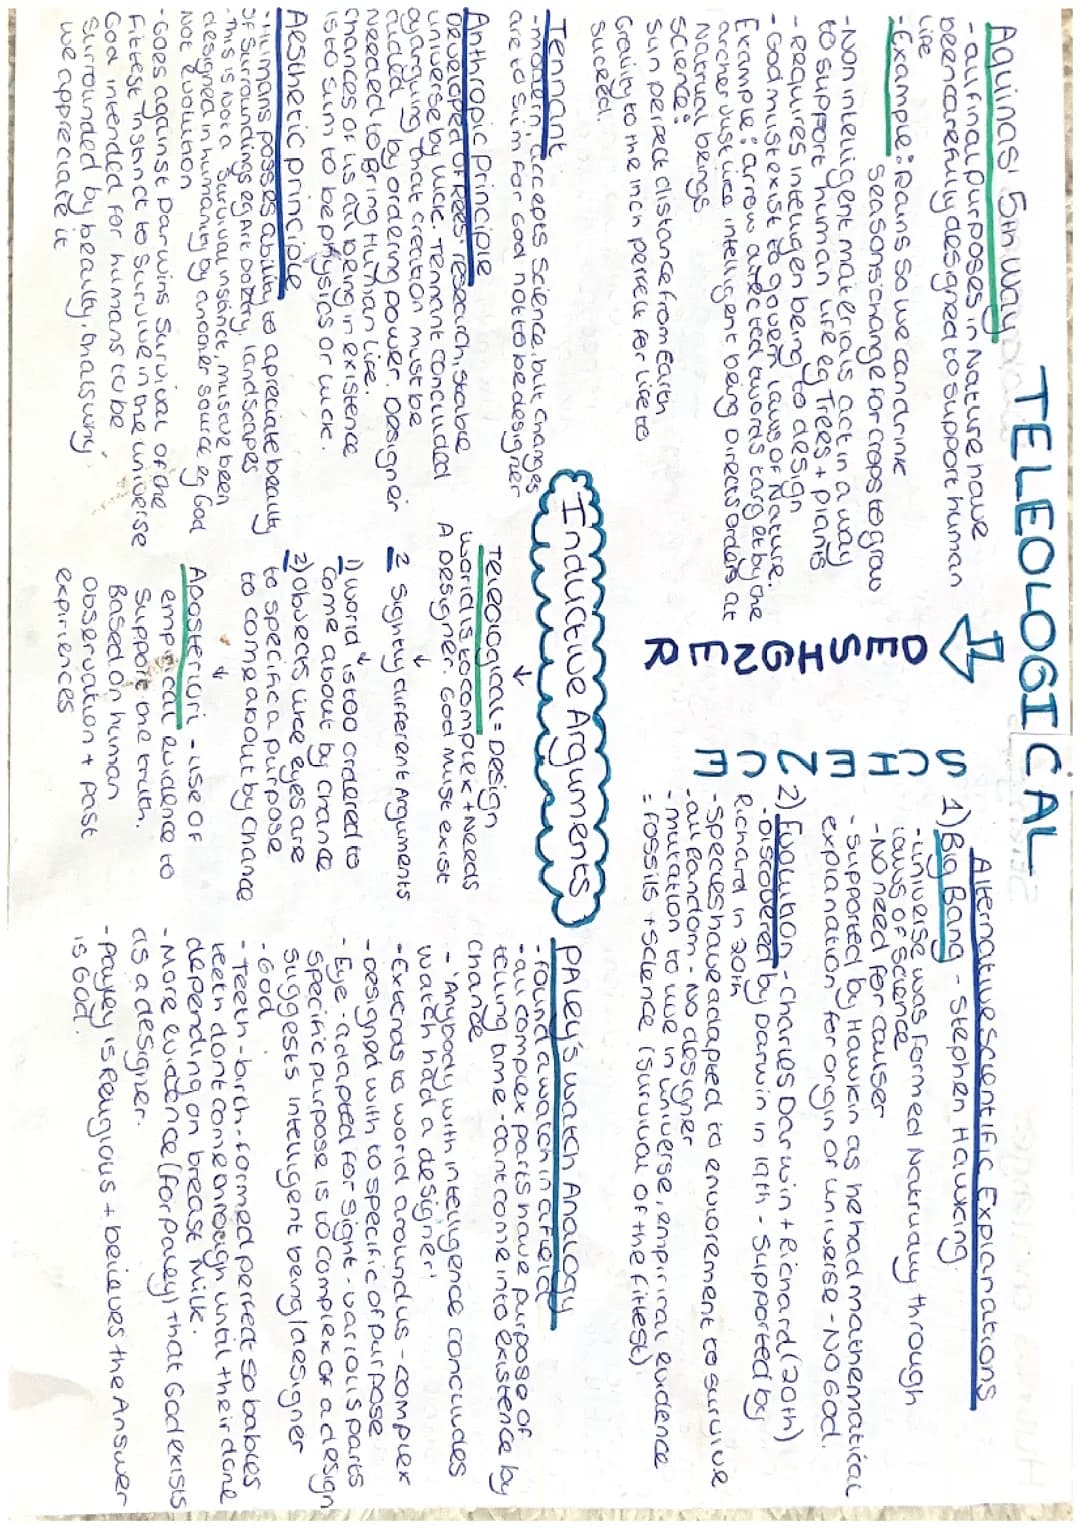 TELEOLOGICAL
DESIGNER
SCIENCE
Aquinas' 5th way
- all final purposes in nature have
been carefully designed to support human
life
- Example: Rains so we can drink
seasons change for crops to grow
- Non intelligent materials act in a way
to support human life eg Trees + plants
- requires intelligen being to design
- God must exist to govern laws of Nature.
Example: arrow directed twords target by the
archer just like intelligent being Directs orders at
Natrual beings.
Science:
Sun perfect distance from Earth
Gravity to the inch perfect for life to
succed.
Alternative scientific Explanations
1) Big Bang - Stephen Hawking.
- universe was formed Natrually through
laws of science
- NO need for causer
- supported by Hawkin as he had mathematical
explanation for origin or universe - NO God.
2) Evolution - Charles Darwin + Richard (20th)
- Discovered by Darwin in 19th - supported by
Richard in 20th
- species have adapted to enviorement to survive
- all Random - No designer
- mutation to live in universe, empirical evidence
= fossils + science (survival of the fittest)
Inductive Arguments
Tennant
- modern, accepts science, but changes
are to slim for God not to be designer
Anthropic principle
Developed of Rees' research, stable
universe by luck. Tennant concluded
arguing that creation must be
guided by ordering power. Designer
needed to Bring Human life.
chances of us all being in existence
is to slim to be physics or luck.
Aesthetic principle
- Humans posses ability to apreciate beauty
of surroundings eg Art poetry, landscapes
- This is not a survival instinct, must ve been
designed in humanity by another source eg God
Not Evolution
- Goes against Darwins survival of the
Fittest instinct to survive in the universe
God intended for humans to be
surrounded by beauty, thats why
we appreciate it
Teleological = Design
↓
world is to complex + Needs
A Designer. God must exist
↓
2 slightly different Arguments
↓
1) World is too ordered to
come about by chance
2) Objects like eyes are
to specific a purpose
to come about by chance
↓
Aposteriori - use of
empirical evidence to
support the truth.
Based on human
Observation + past
expriences
PALEY's watch Analogy
- found a watch in a field
- all complex parts have purpose of
telling time - cant come into existence by
chance
- 'Anybody with intelligence concludes
watch had a designer'
- Extends to world around us - complex
- designed with to specific of purpose
- Eye - adapted for sight - various parts
specific purpose is to complex of a design
suggests intelligent being/designer
- God
- Teeth - birth - formed perfect so babies
teeth dont come through until their done
depending on breast milk.
- More evidence (for paley) that God exists
as a designer.
- Payley is Religious + believes the Answer
is God.